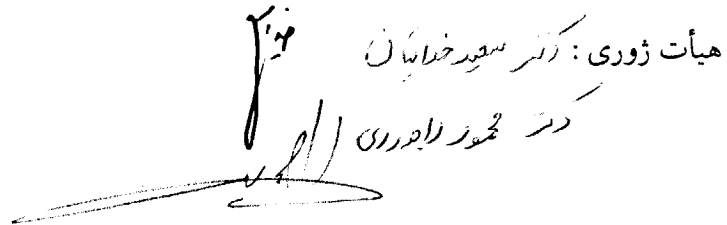 هیأت ژوری : دکتر سعید خدائیان
دکتر محمود